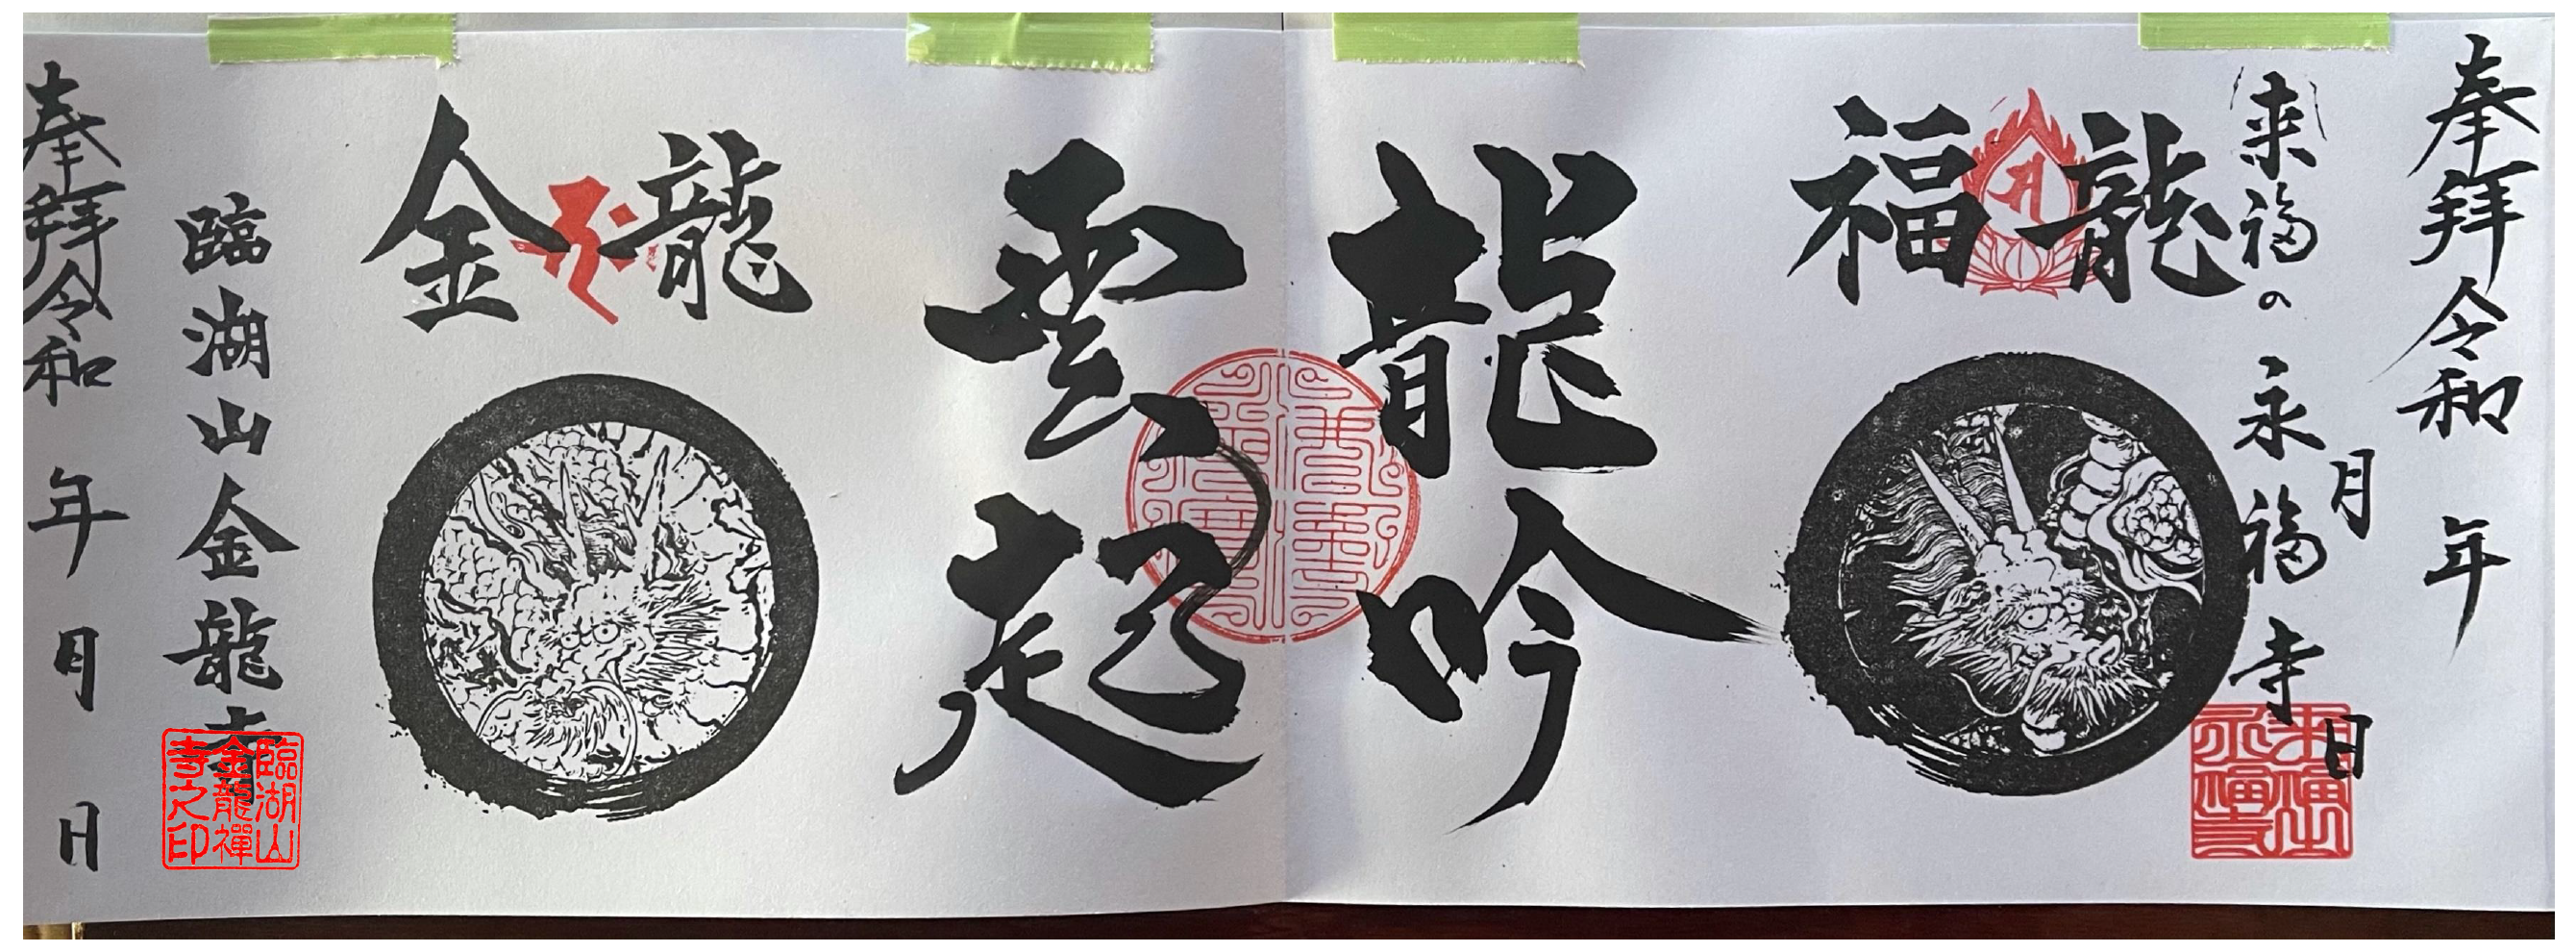 奉拝令和 年
月
日
来福の 永福寺
来福山永福寺
福龍
龍吟
雲起
金龍
臨湖山金龍寺
臨湖山金龍禪寺之印
奉拝令和 年 月 日